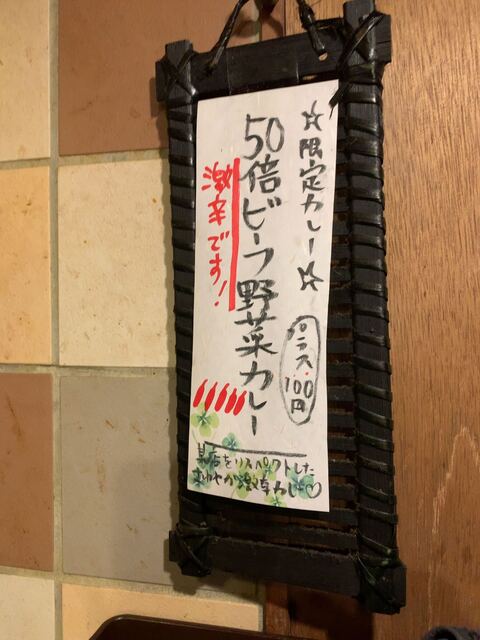 ☆限定カレー☆
50倍ビーフ野菜カレー
激辛です!
プラス100円
某店をリスペクトした
さわやか激辛カレー♡